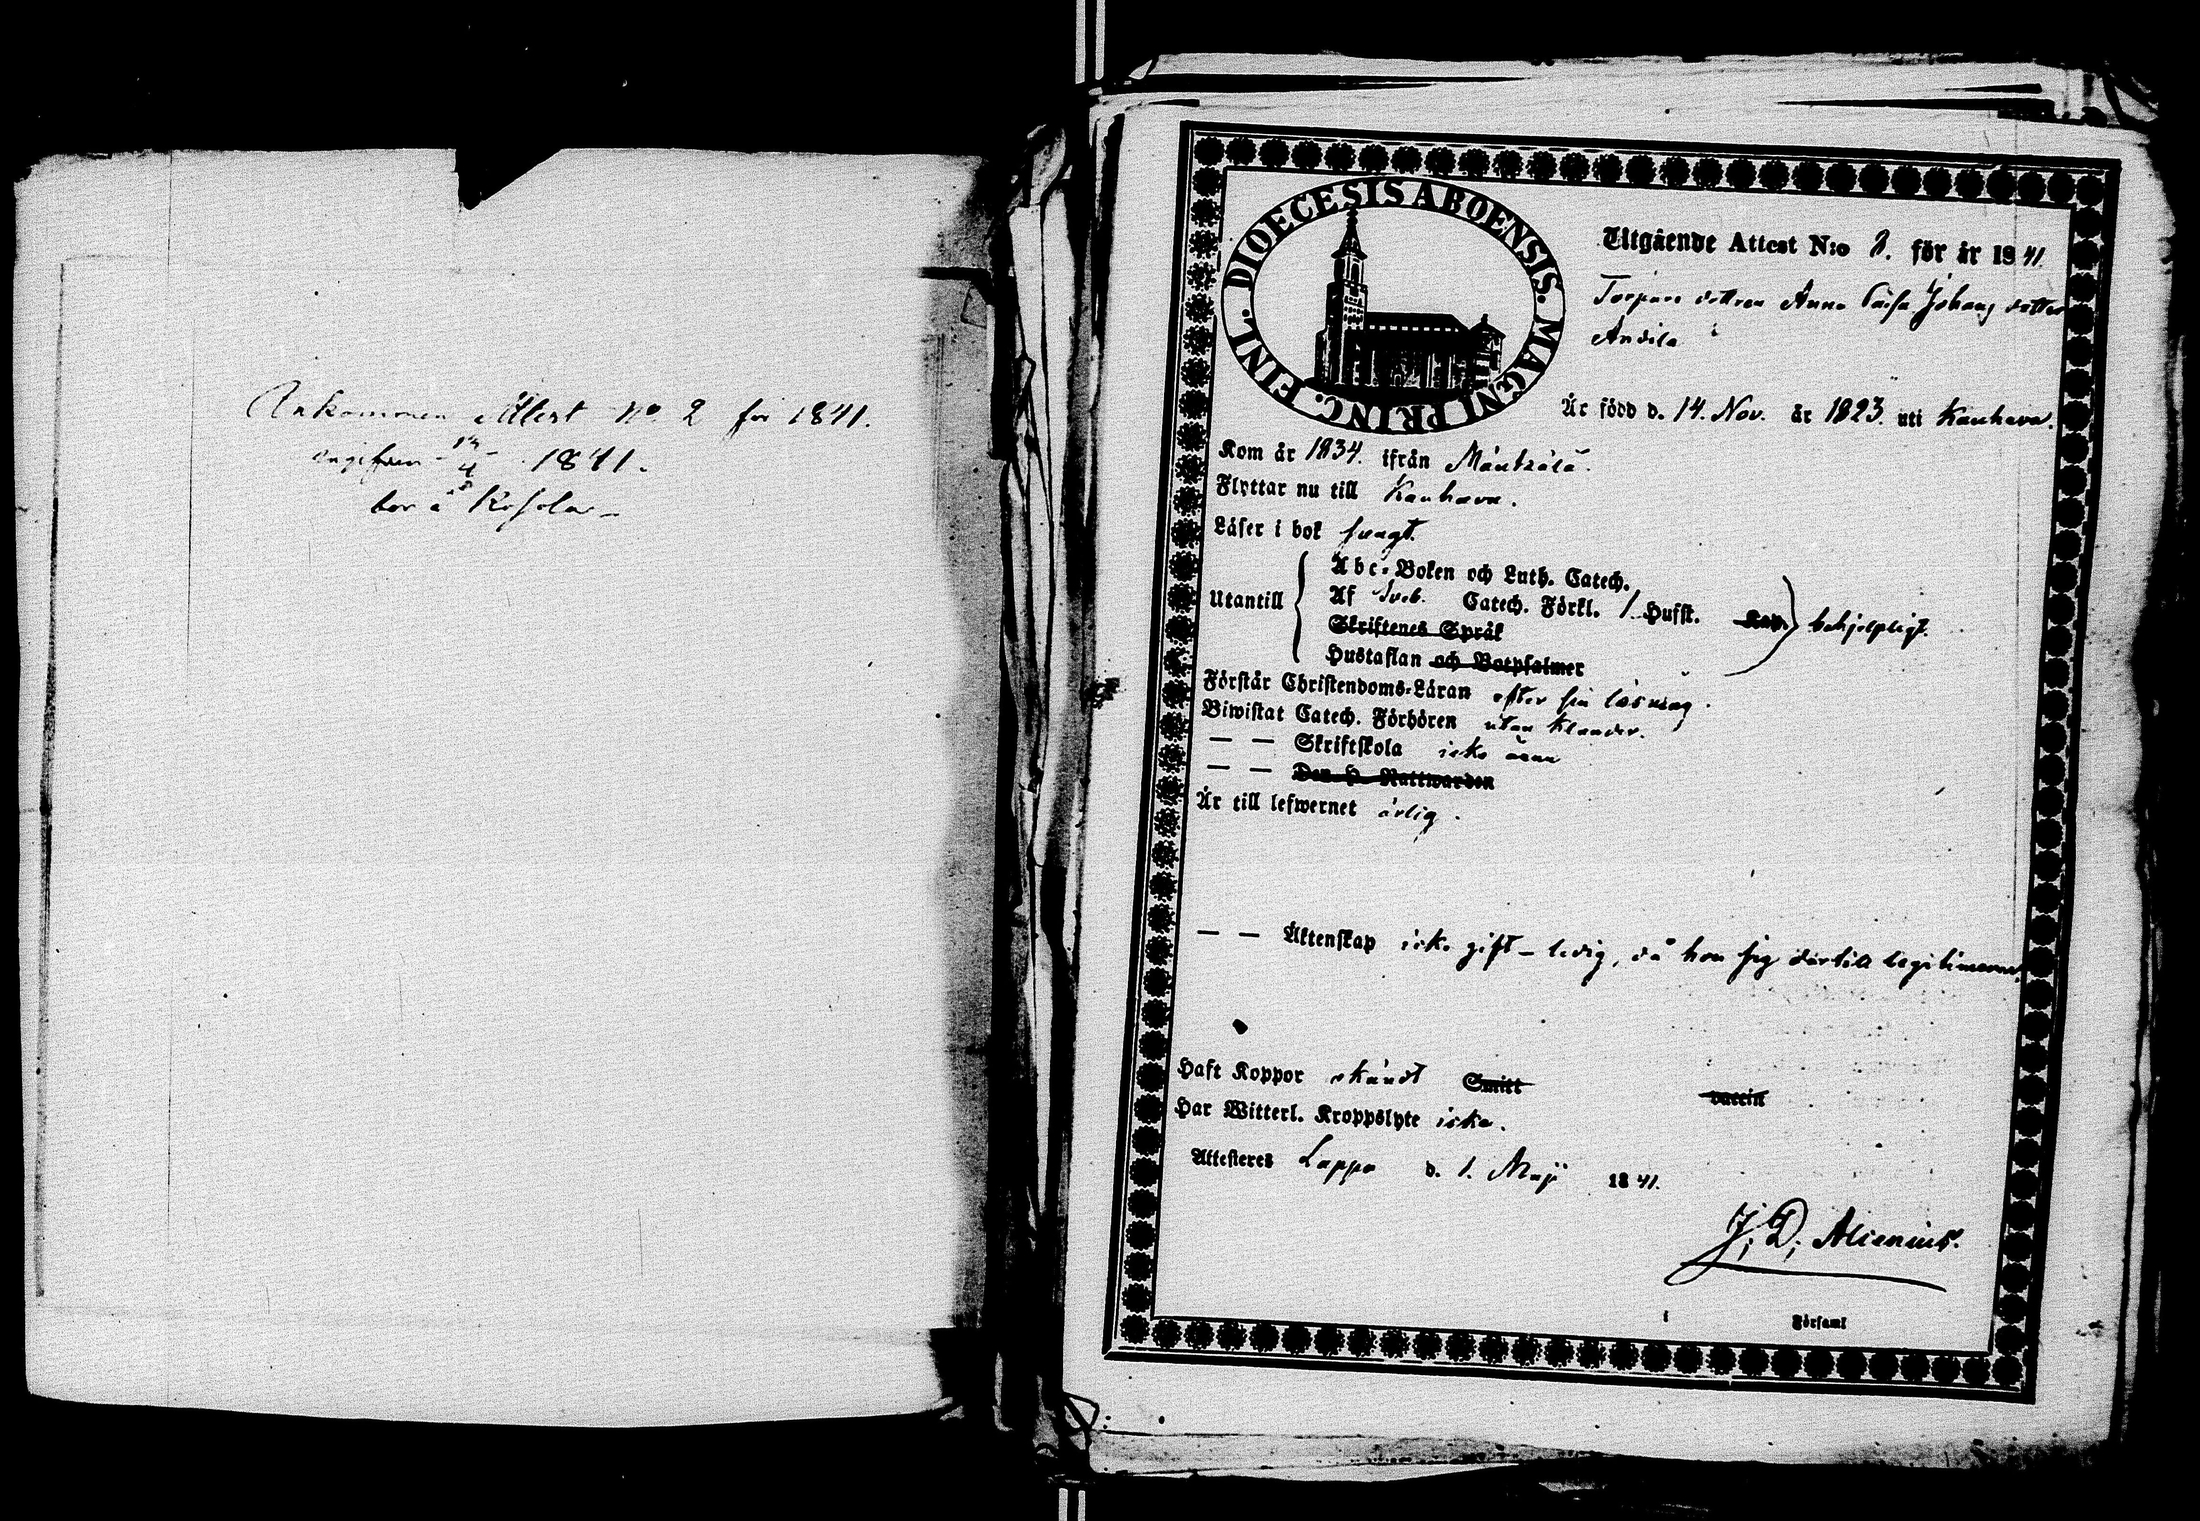 Ankommen Attest No 2 för 1841.
1841.
bor å
DIOECESIS ABOENSIS. MAGNI PRINC. FINL.
Utgående Attest N:o 8. för år 1841.
Torpare dottren Anna Caisa Johans dotter
Andila
Är född d. 14. Nov. år 1823. uti Kauhava.
Kom år 1834. ifrån Mäntsälä.
Flyttar nu till Kauhava.
Läser i bok svagt.
Utantill
Abc-Boken och Luth. Catech.
Af Sveb. Catech. Förkl. 1. Hufst. Kap.
Skriftenes Språk
Hustaflan och Botpsalmer
behjelpligt.
Förstår Christendoms-Läran efter sin läsning.
Biwistat Catech. Förhören utan klander.
— — Skriftskola icke ännu
— — Den H. Nattwarden
Är till lefwernet ärlig.
— — Äktenskap icke gift - ledig, då hon sig därtill legitimerar.
Haft Koppor okändt Smitt vaccin
Har Witterl. Kroppslyte icke.
Attesteres Lappo d. 1. Maji 1841.
J. D. Alcenius.
i Församl